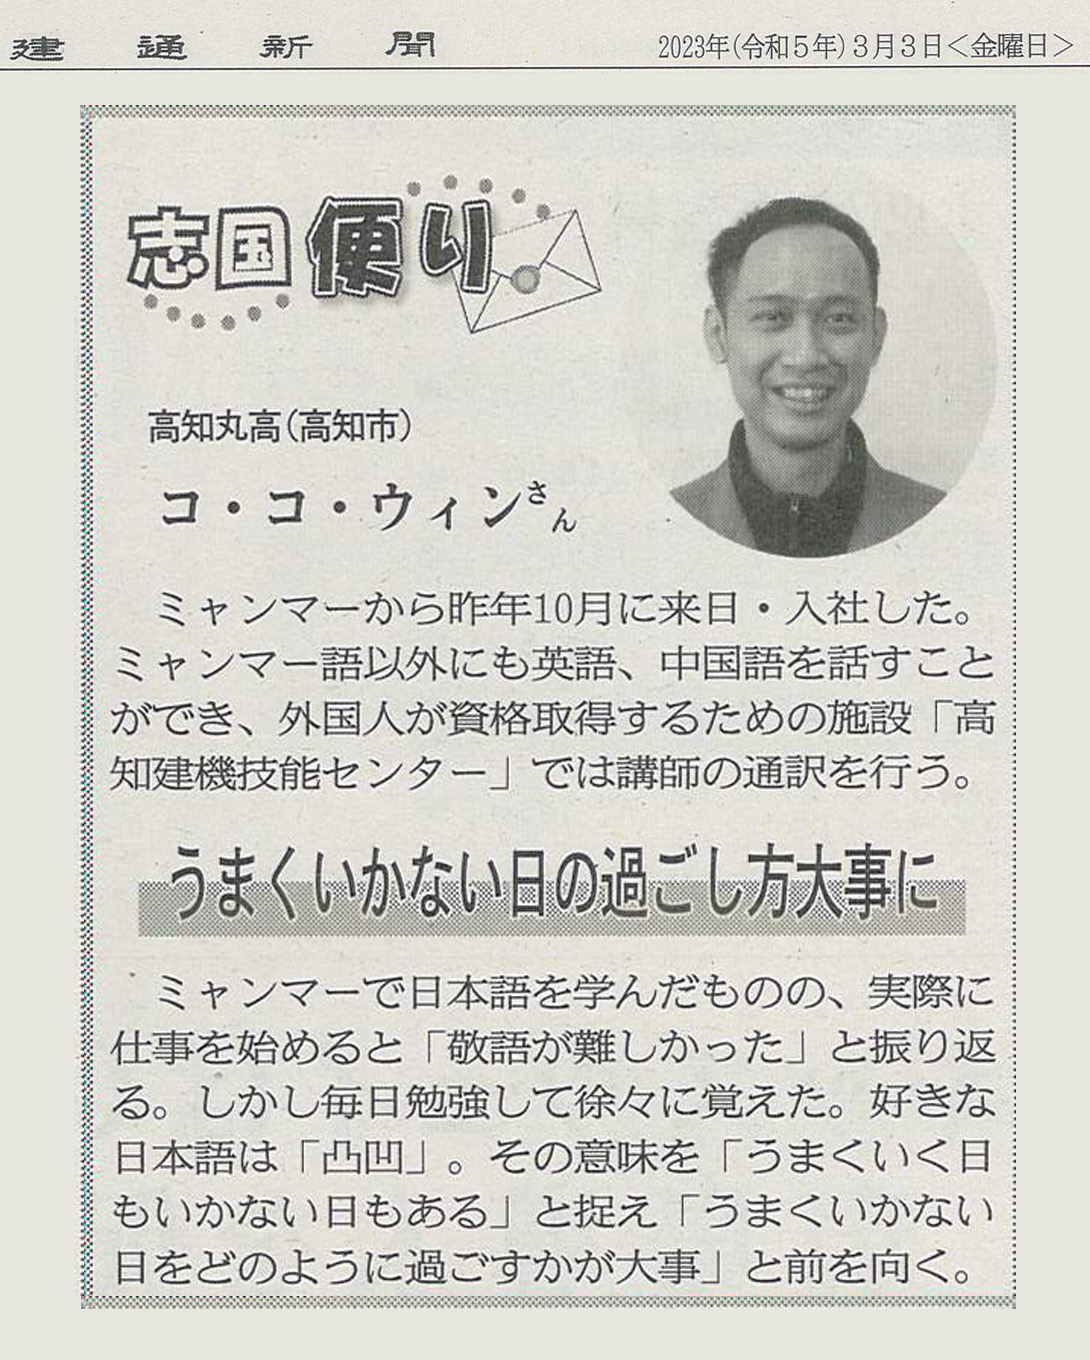 建通新聞
2023年(令和5年)3月3日＜金曜日＞
志国便り
高知丸高(高知市)
コ・コ・ウィンさん
ミャンマーから昨年10月に来日・入社した。
ミャンマー語以外にも英語、中国語を話すこと
ができ、外国人が資格取得するための施設「高
知建機技能センター」では講師の通訳を行う。
うまくいかない日の過ごし方大事に
ミャンマーで日本語を学んだものの、実際に
仕事を始めると「敬語が難しかった」と振り返
る。しかし毎日勉強して徐々に覚えた。好きな
日本語は「凸凹」。その意味を「うまくいく日
もいかない日もある」と捉え「うまくいかない
日をどのように過ごすかが大事」と前を向く。